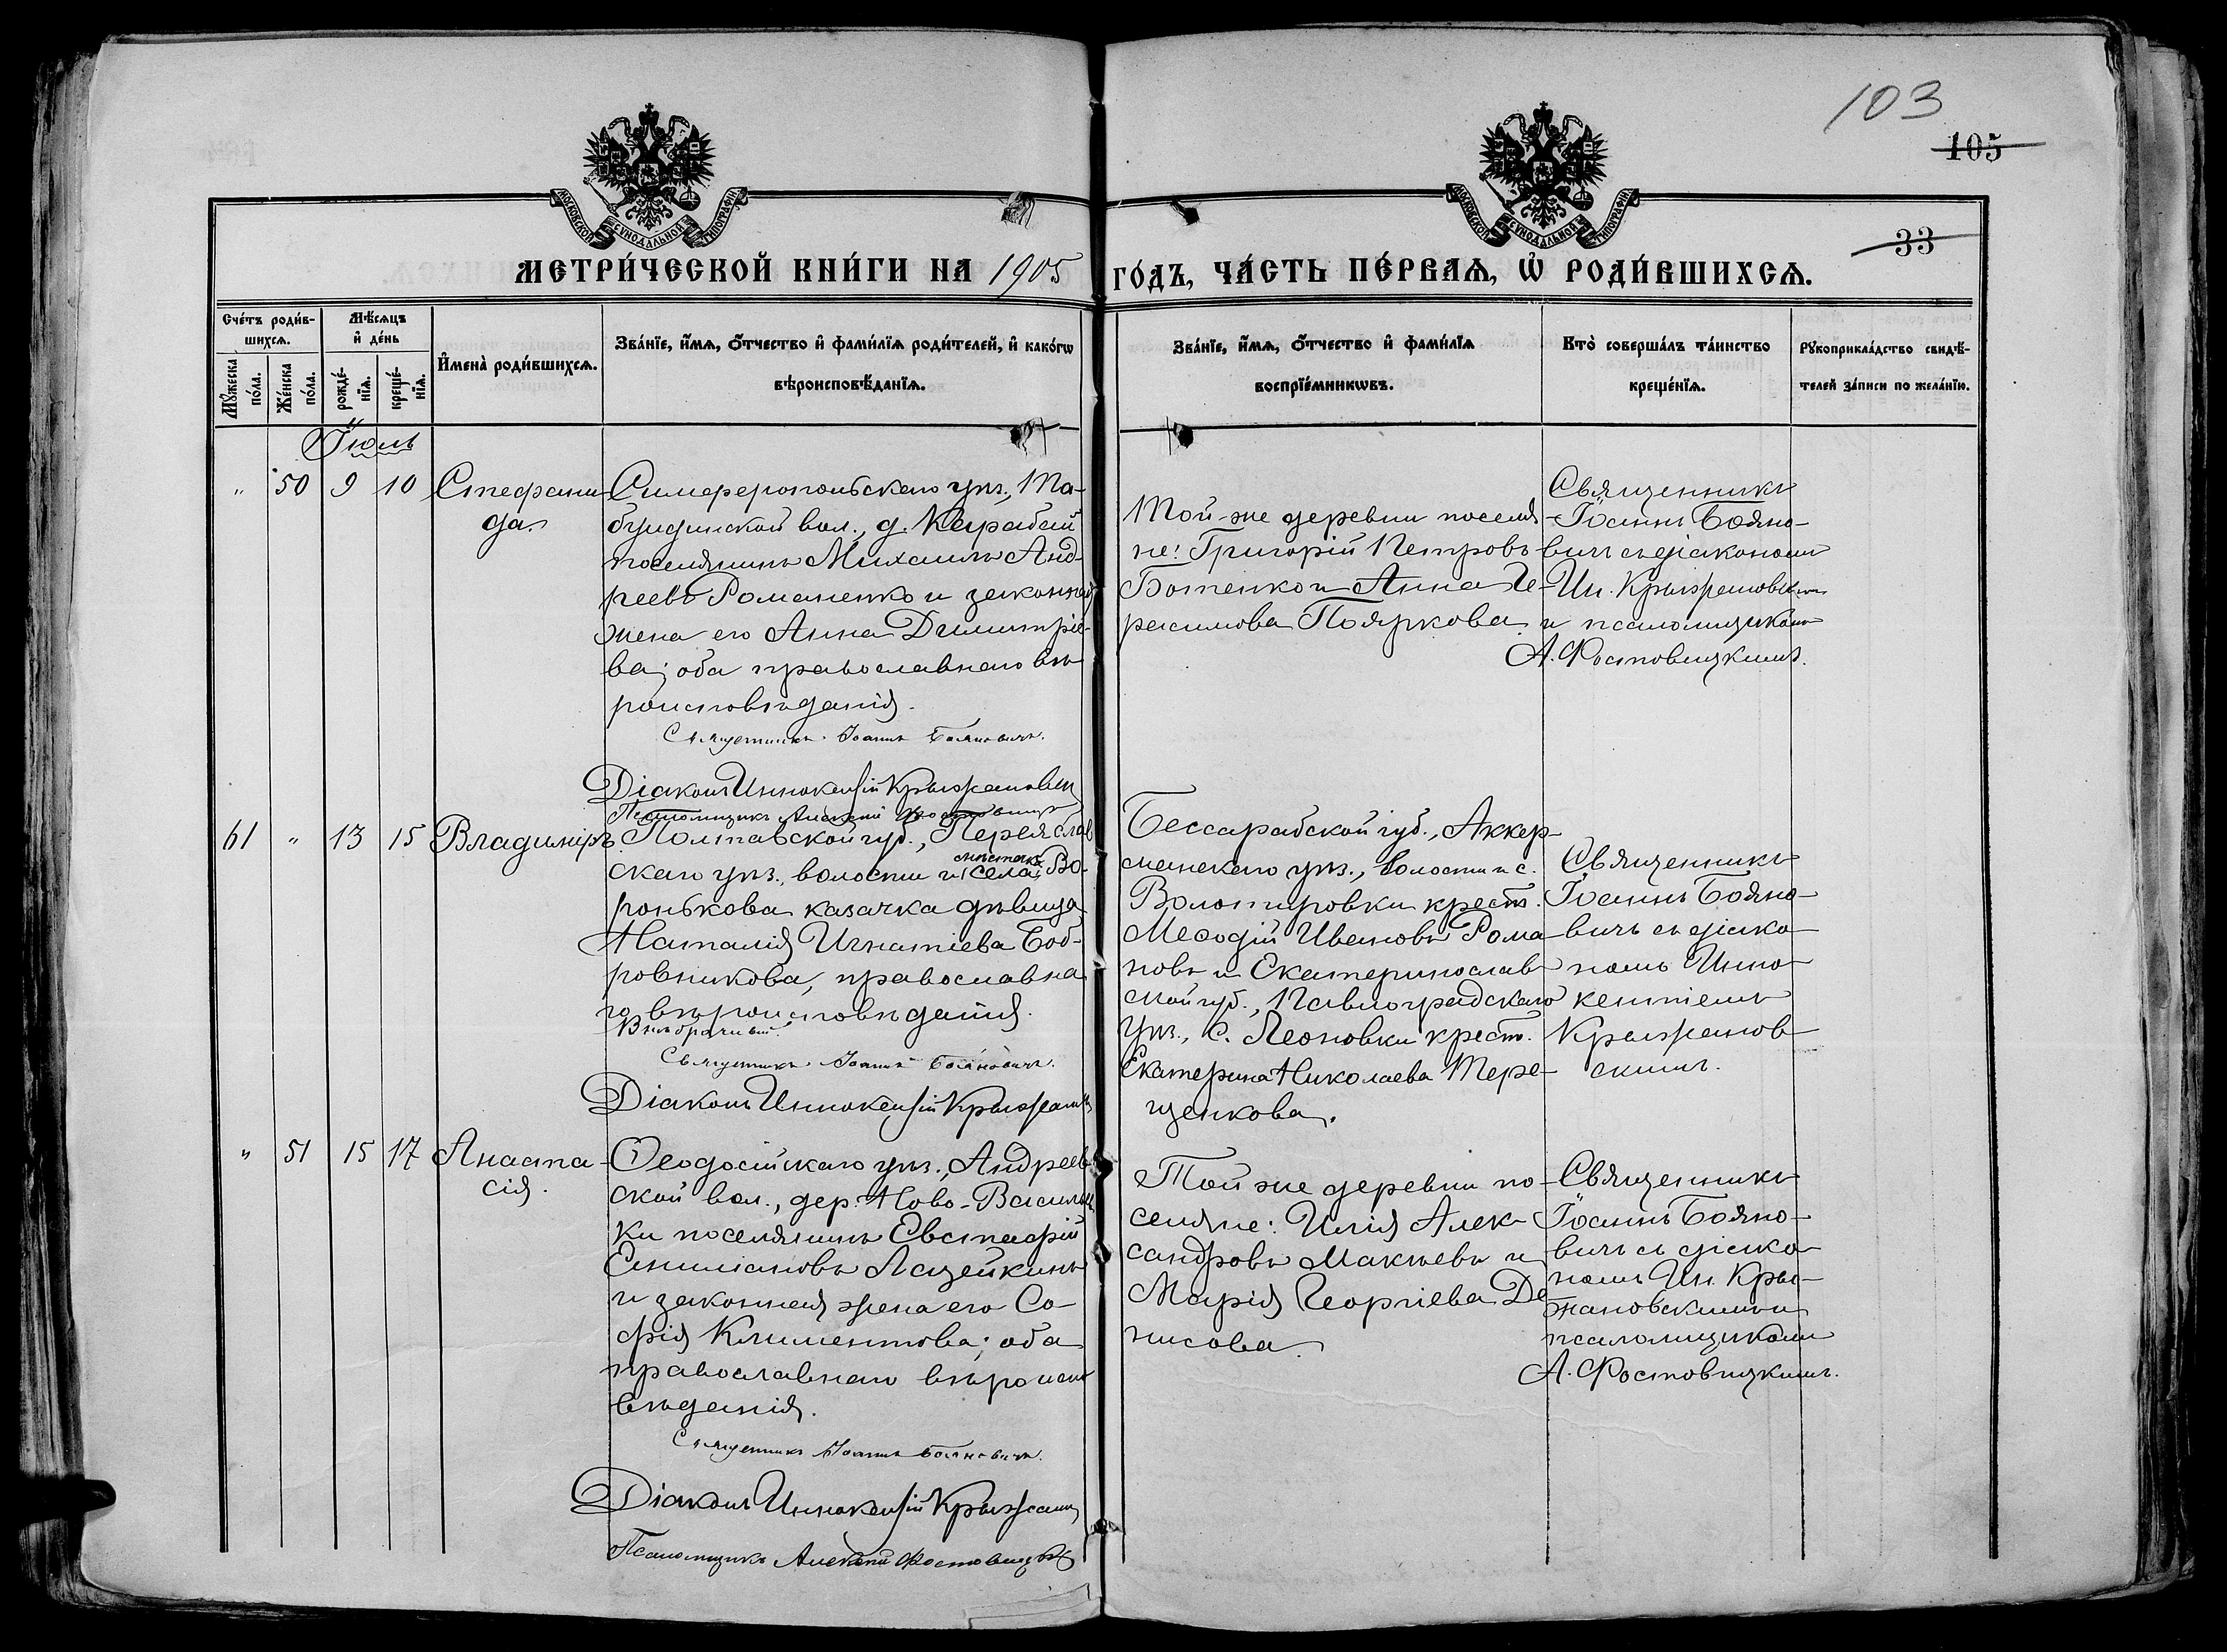 103
105
33
МОСКОВСКОЙ СѴНОДАЛЬНОЙ ТИПОГРАФІИ
МОСКОВСКОЙ СѴНОДАЛЬНОЙ ТИПОГРАФІИ
МЕТРИ́ЧЕСКОЙ КНИ́ГИ НА 1905 ГО́ДЪ, ЧА́СТЬ ПЕ́РВАЯ, Ѡ҆ РОДИ́ВШИХСѦ.
Сче́тъ роди́в-
шихсѧ.
Мꙋ́жеска по́ла.
Же́нска по́ла.
Мѣ́сѧцъ
и҆ де́нь
рожде́-
нїѧ.
креще́-
нїѧ.
И҆мена̀ роди́вшихсѧ.
Зва́нїе, и҆́мѧ, ѻ҆́тчество и҆ фами́лїѧ роди́телей, и҆ како́гѡ
вѣроисповѣ́данїѧ.
Зва́нїе, и҆́мѧ, ѻ҆́тчество и҆ фами́лїѧ
воспрїе́мникѡвъ.
Кто̀ соверша́лъ та́инство
креще́нїѧ.
Рꙋкоприкла́дство свидѣ́-
телей за́писи по жела́нїю.
Іюль
" 50 9 10 Стефани-
да.
Симферопольскаго уѣз., Та-
булдинской вол., д. Карабай
поселянинъ Михаилъ Анд-
реевъ Романенко и законная
жена его Анна Димитріе-
ва; оба православнаго вѣ-
роисповѣданія.
Священникъ Іоаннъ Бояновичъ.
Діаконъ Иннокентій Крыжановскій
Псаломщикъ Алексій Фостовицкій
Той-же деревни поселя-
не: Григорій Петровъ
Ботенко и Анна Ге-
расимова Пояркова
Священникъ
Іоаннъ Бояно-
вичъ съ діакономъ
Ин. Крыжановскимъ
и псаломщикомъ
А. Фостовицкимъ.
61 " 13 15 Владиміръ
Полтавской губ., Переяслав
скаго уѣз., волости и села мѣстечка Во-
ронькова казачка дѣвица
Наталія Игнатіева Боб-
ровникова, православна
го вѣроисповѣданія.
Внѣбрачный
Священникъ Іоаннъ Бояновичъ.
Діаконъ Иннокентій Крыжанов
Бессарабской губ., Аккер-
манскаго уѣз., волости и с.
Волонтировки крест.
Меѳодій Ивановъ Рома-
новъ и Екатеринослав-
ской губ., Павлоградскаго
уѣз., с. Леоновки крест.
Екатерина Николаева Тере-
щенкова.
Священникъ
Іоаннъ Бояно-
вичъ съ діако-
номъ Инно-
кентіемъ
Крыжанов-
скимъ.
" 51 15 17 Анаста-
сія.
Ѳеодосійскаго уѣз., Андреев-
ской вол., дер. Ново-Васильев
ки поселянинъ Евстафій
Емиліановъ Лацейкинъ
и законная жена его Со-
фія Климентова; оба
православнаго вѣроиспо
вѣданія.
Священникъ Іоаннъ Бояновичъ.
Діаконъ Иннокентій Крыжанов
Псаломщикъ Алексій Фостовицкій
Той же деревни по-
селяне: Илія Алек-
сандровъ Макѣевъ и
Марія Георгіева Де-
нисова.
Священникъ
Іоаннъ Бояно-
вичъ съ діако-
номъ Ин. Кры-
жановскимъ и
псаломщикомъ
А. Фостовицкимъ.